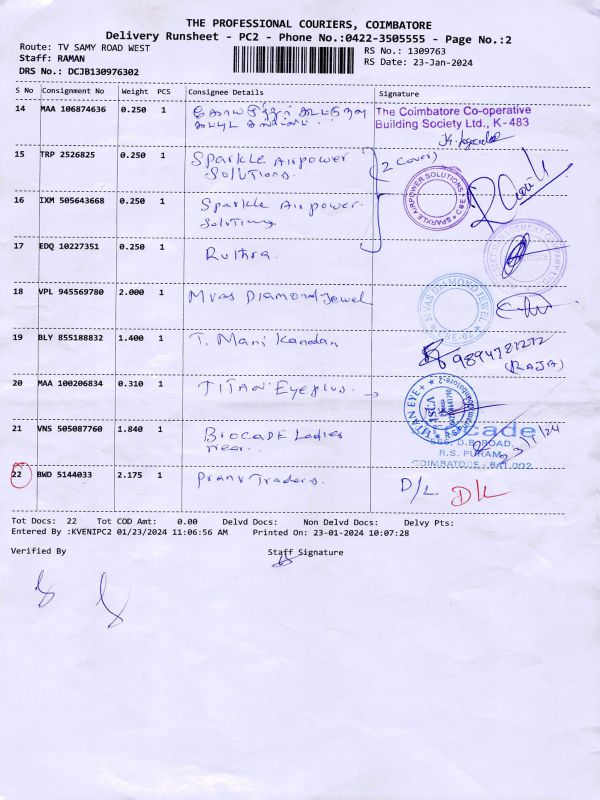 THE PROFESSIONAL COURIERS, COIMBATORE
Delivery Runsheet - PC2 - Phone No.:0422-3505555 - Page No.:2
Route: TV SAMY ROAD WEST
Staff: RAMAN
DRS No.: DCJB130976302
RS No.: 1309763
RS Date: 23-Jan-2024
S No Consignment No Weight PCS Consignee Details Signature
14 MAA 106874636 0.250 1
The Coimbatore Co-operative
Building Society Ltd., K-483
15 TRP 2526825 0.250 1 Sparkle Airpower
Solutions.
(2 Cover)
SPARKLE AIRPOWER SOLUTIONS
CBE
16 IXM 505643668 0.250 1 Sparkle Airpower.
Solutions
17 EDQ 10227351 0.250 1 Ruthra.
18 VPL 945569780 2.000 1 Mvas Diamond Jewel
MVAS DIAMOND JEWEL
19 BLY 855188832 1.400 1 T. Mani Kandan
(RAJA)
20 MAA 100206834 0.310 1 TITAN Eyeplus.
TITAN EYE+
21 VNS 505087760 1.840 1 Brocade Ladies
Wear.
23/1/24
D.B. ROAD,
R.S. PURAM,
COIMBATORE - 641 002
22 BWD 5144033 2.175 1 Pranv Traders.
D/L D/L
Tot Docs: 22 Tot COD Amt: 0.00 Delvd Docs: Non Delvd Docs: Delvy Pts:
Entered By :KVENIPC2 01/23/2024 11:06:56 AM Printed On: 23-01-2024 10:07:28
Verified By Staff Signature